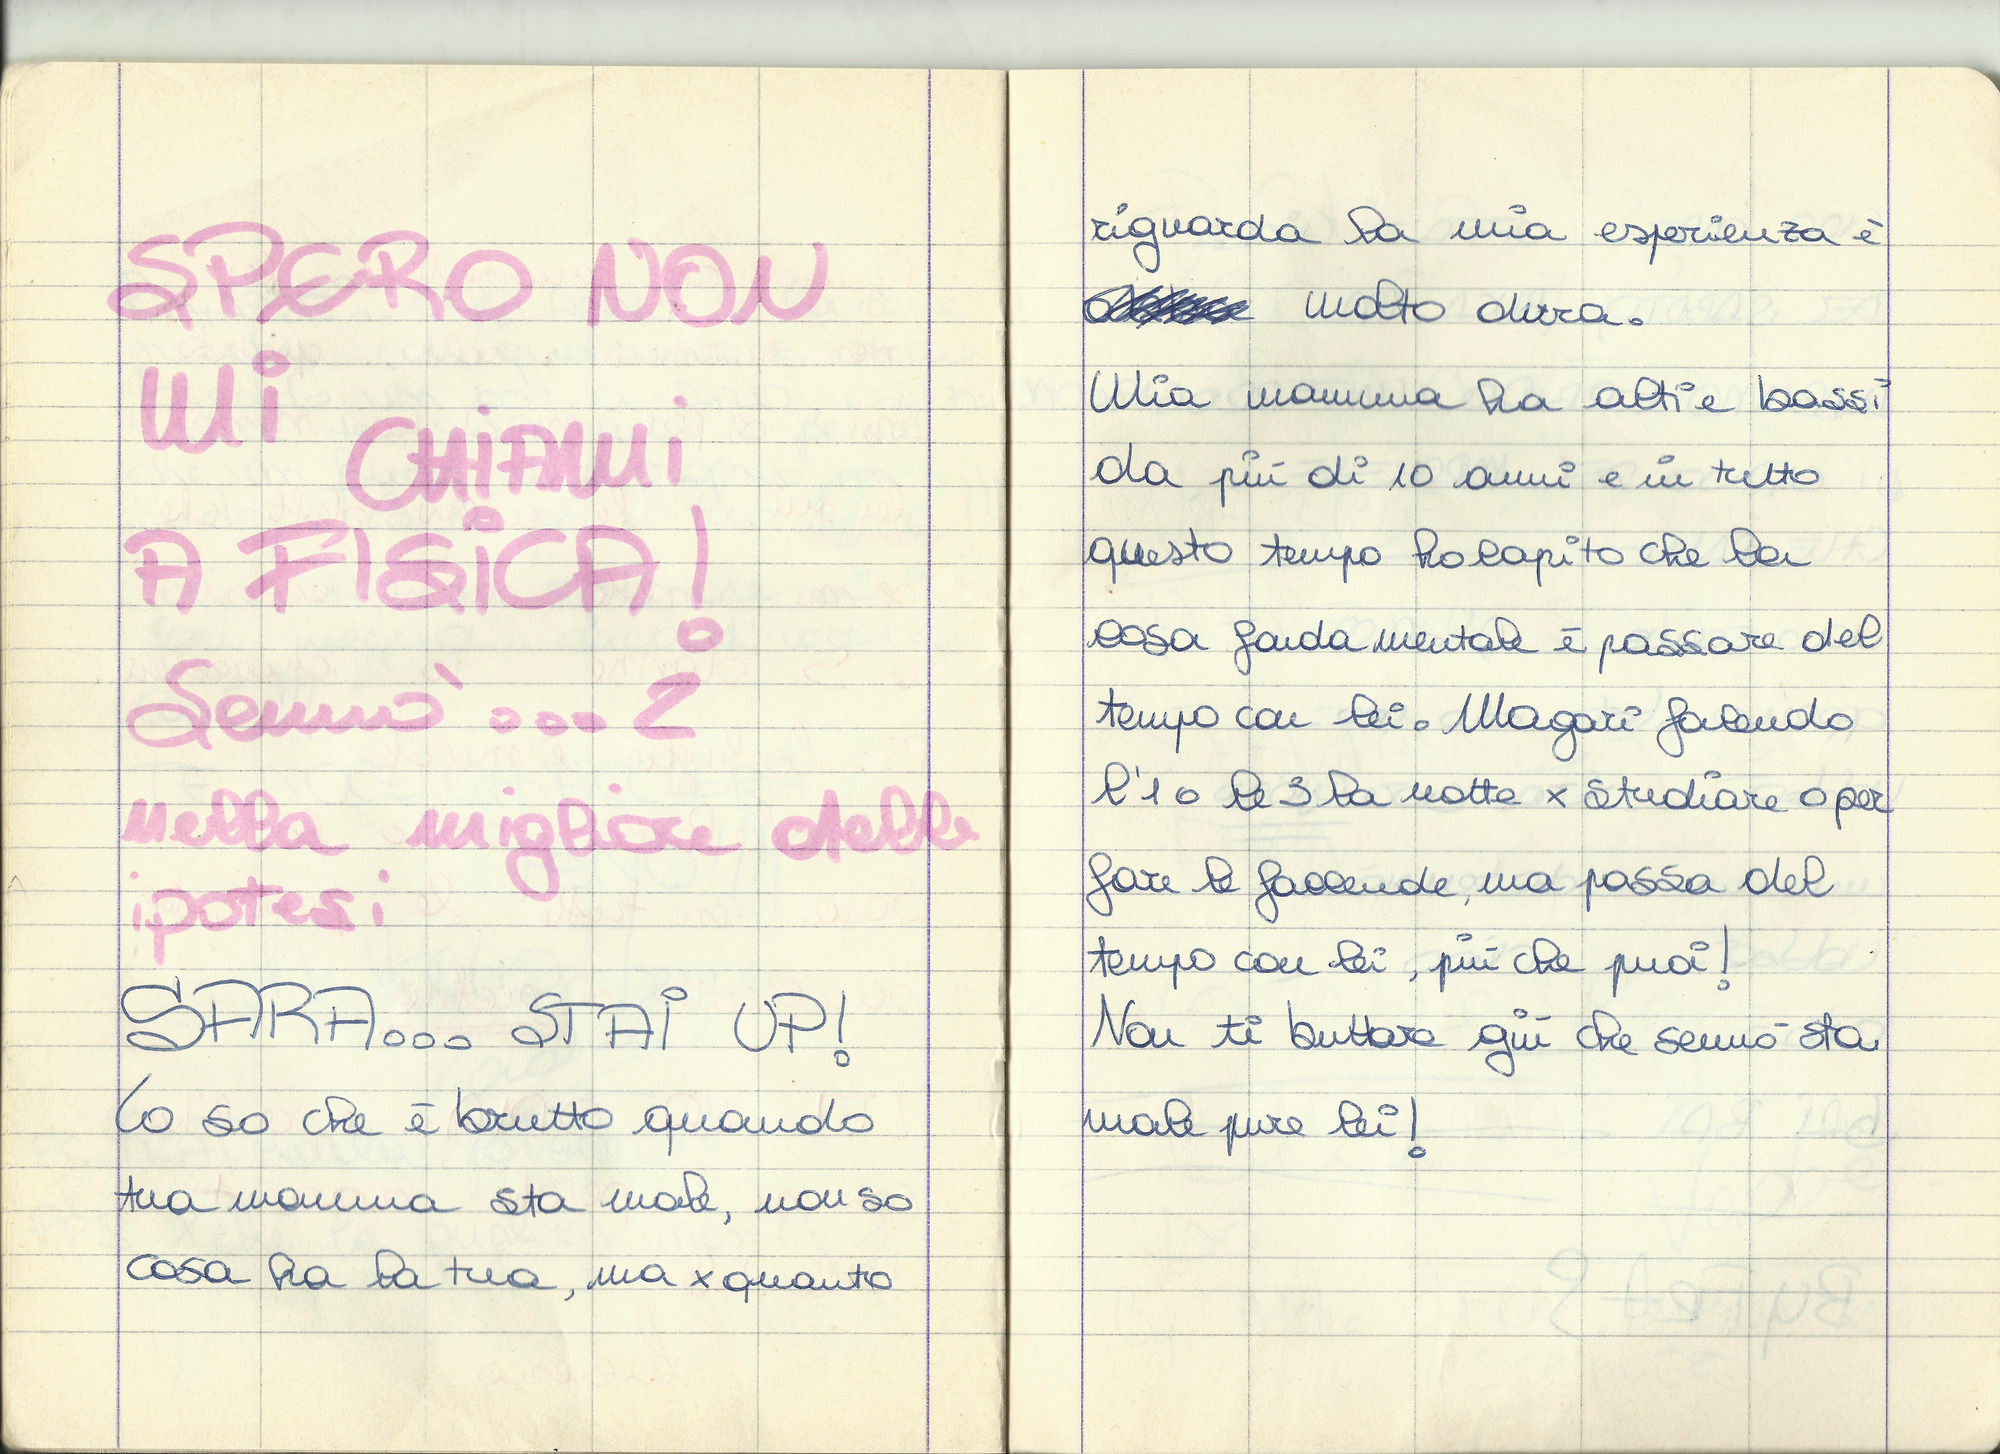 SPERO NON
MI
CHIAMI
A FISICA!
Sennò ... 2
nella migliore delle
ipotesi
SARA... STAI UP!
Lo so che è brutto quando
tua mamma sta male, non so
cosa ha la tua, ma x quanto
riguarda la mia esperienza è
molto dura.
Mia mamma ha alti e bassi
da più di 10 anni e in tutto
questo tempo ho capito che la
cosa fondamentale è passare del
tempo con lei. Magari facendo
l'1 o le 3 la notte x studiare o per
fare le faccende, ma passa del
tempo con lei, più che puoi!
Non ti buttare giù che sennò sta
male pure lei!